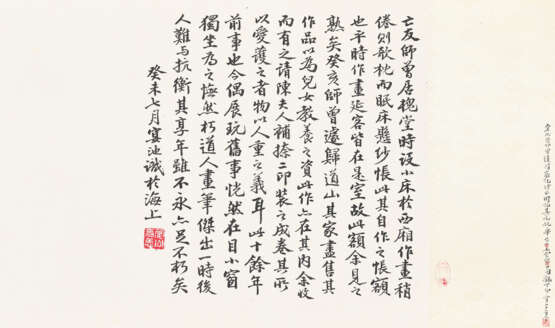 亡友師曾居槐堂時設小床於西廂作畫稍
倦則欹枕而眠床懸紗帳此其自作之帳額
也平時作畫延客皆在是室故此額余見之
熟矣癸亥師曾遽歸道山其家盡售其
作品以為兒女教養之資此作亦在其內余收
而有之請陳夫人補捺二印裝之成卷其所
以愛護之者物以人重之義耳此十餘年
前事也今偶展玩舊事恍然在目小窗
獨坐為之憮然朽道人畫筆傑出一時後
人難與抗衡其享年雖不永亦足不朽矣
癸未七月宴池誠於海上